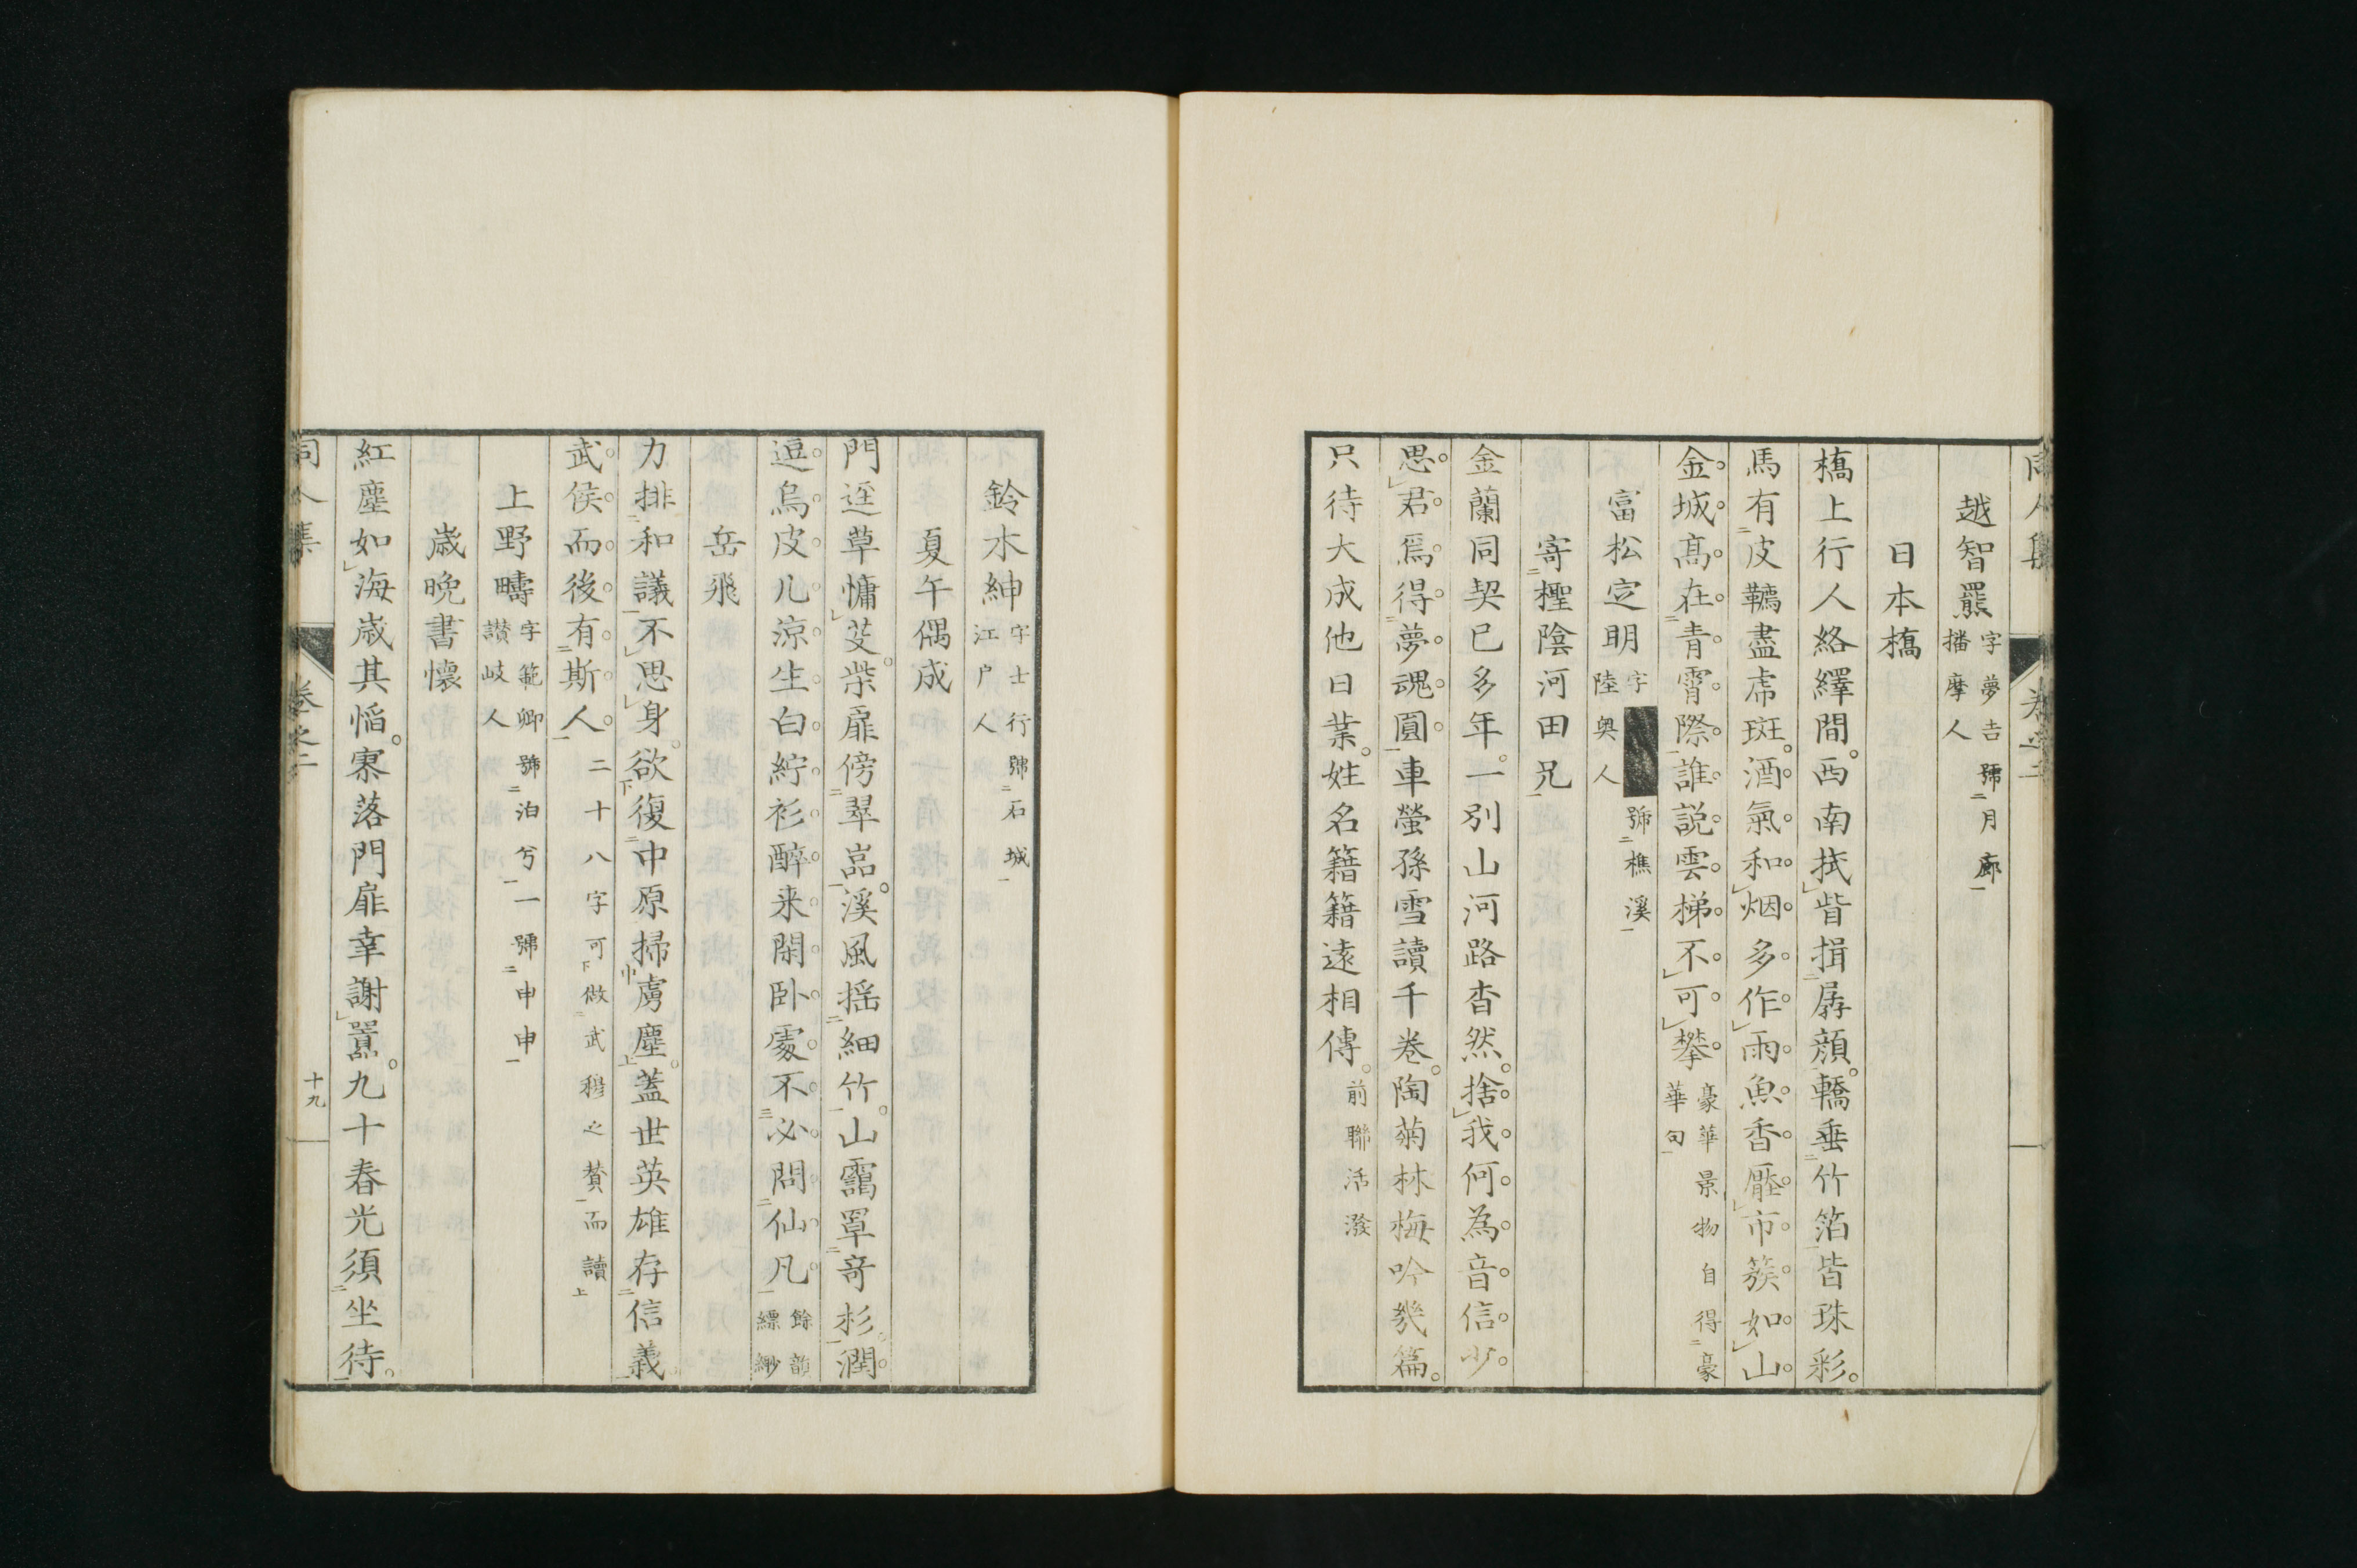 越智羆 字夢吉號月廊播摩人
日本橋
橋上行人絡繹間西南拭眥揖孱顔轎垂竹箔皆珠彩
馬有皮韉盡虎斑酒氣和烟多作雨魚香壓市簇如山
金城高在青霄際誰説雲梯不可攀 豪華景物自得豪華句
富松定明 字 號樵溪陸奥人
寄檉陰河田兄
金蘭同契已多年一別山河路杳然捨我何為音信少
思君焉得夢魂圓車螢孫雪讀千卷陶菊林梅吟幾篇
只待大成他日業姓名籍籍遠相傳 前聯活潑
鈴木紳 字士行號石城江戸人
夏午偶成
門逕草慵芟柴扉傍翠嵓溪風揺細竹山靄罩奇杉潤
逗烏皮几涼生白紵衫醉来閑卧處不必問仙凡 餘韵縹緲
岳飛
力排和議不思身欲復中原掃虜塵蓋世英雄存信義
武侯而後有斯人 二十八字可做武穆之賛而讀
上野疇 字範卿號泊兮一號申申讃岐人
歳晩書懷
紅塵如海歳其慆寥落門扉幸謝囂九十春光須坐待
同人集 卷之二 十九